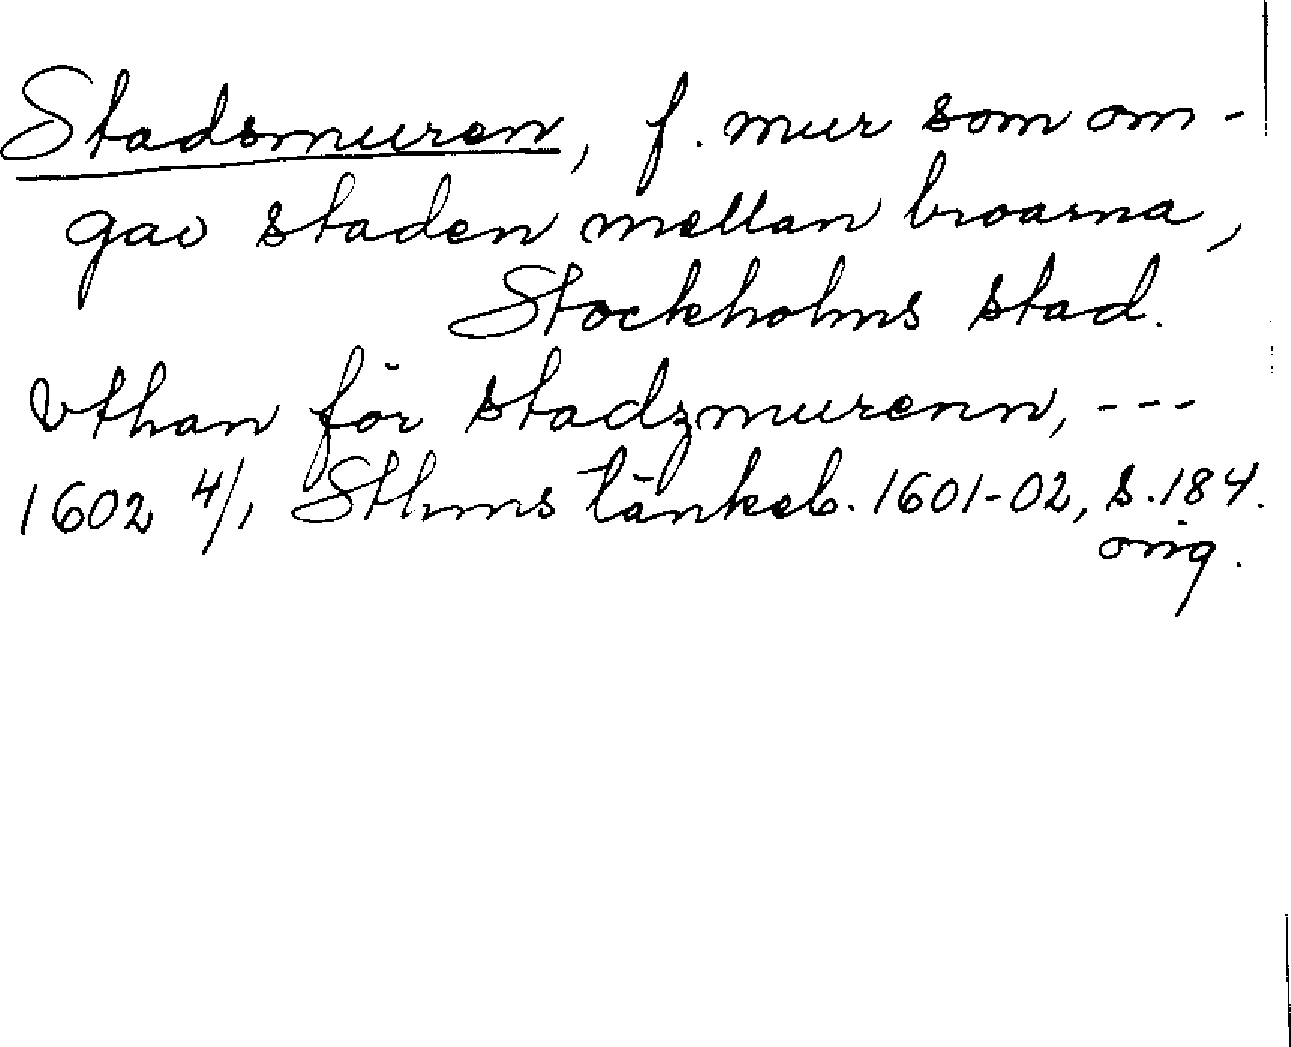 Stadsmuren, f. mur som om-
gav staden mellan broarna,
Stockholms stad.
Vthan för stadzmurenn, ---
1602 4/1 Sthms tänkeb. 1601-02, s. 184.
orig.